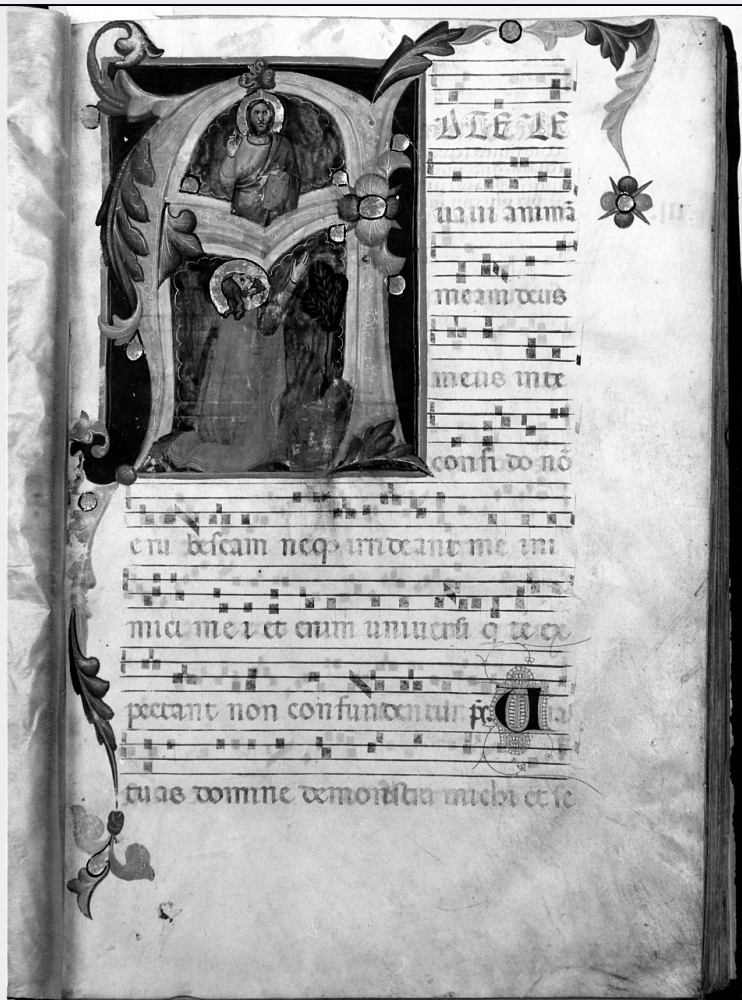 A D TE LE
uaui animā
meam deus
meus in te
confido nō
erubescam neq irrideant me ini
mici mei et enim uniuersi q te ex
pectant non confundentur pš. Uias
tuas domine demonstra michi et se